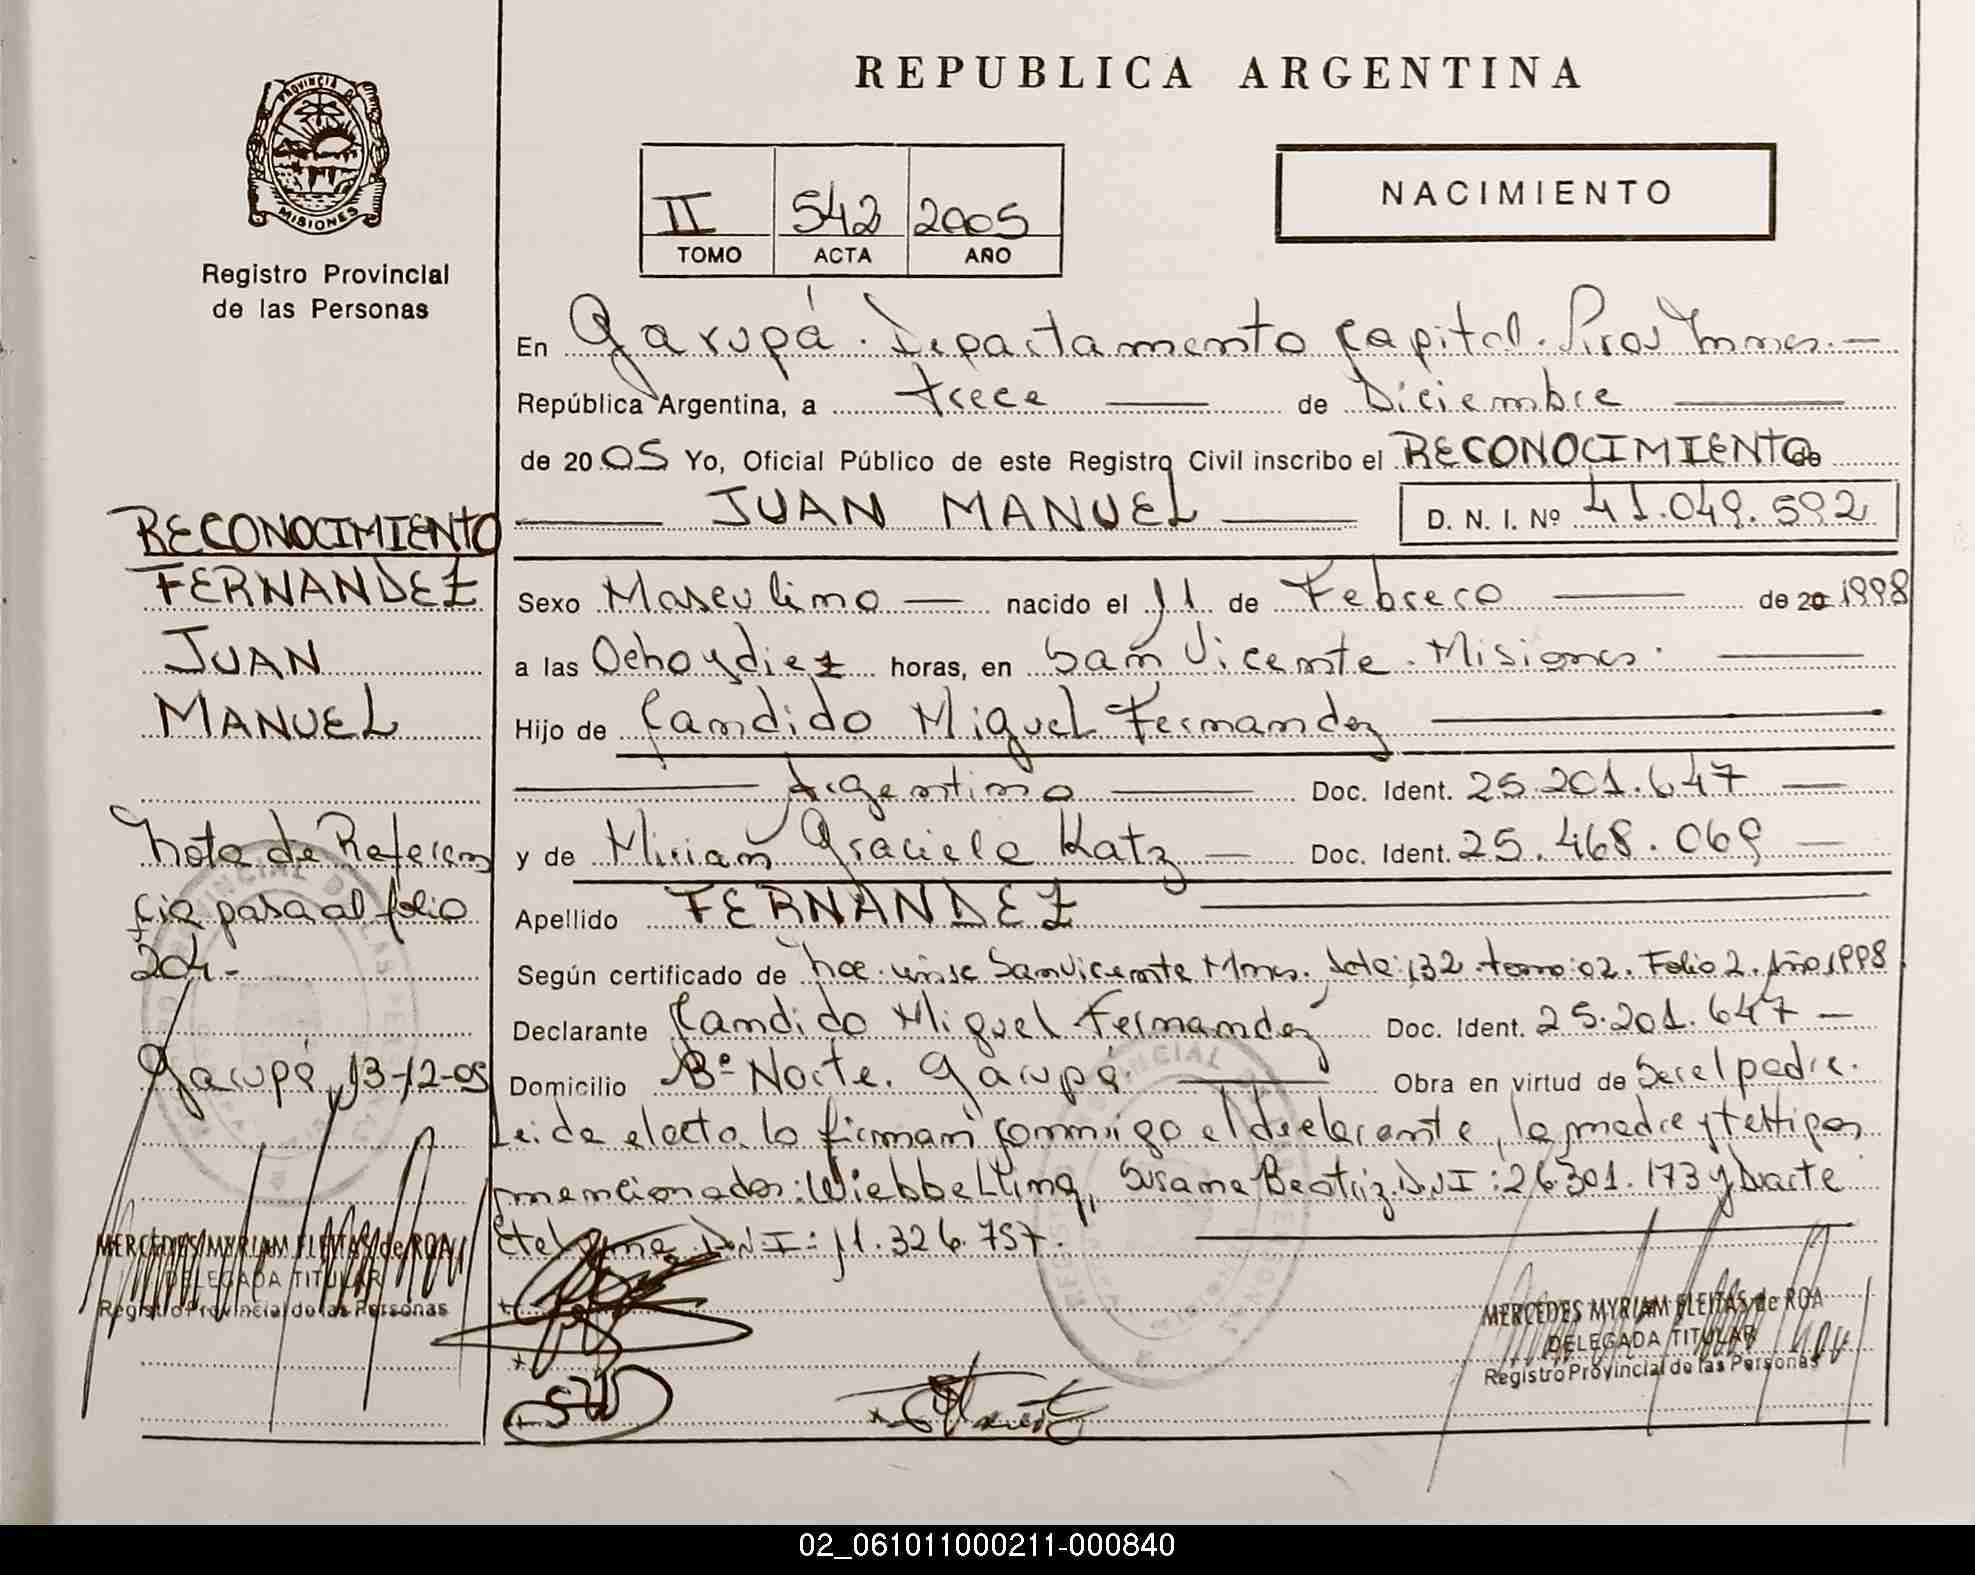 REPUBLICA ARGENTINA
PROVINCIA DE
MISIONES
Registro Provincial
de las Personas
II 542 2005
TOMO ACTA AÑO
NACIMIENTO
En Garupá. Departamento Capital. Mnes.
República Argentina, a trece de Diciembre
de 2005 Yo, Oficial Público de este Registro Civil inscribo el RECONOCIMIENTO de
JUAN MANUEL D. N. I. Nº 41.049.592
Sexo Masculino nacido el 11 de Febrero de 1998
a las Ocho y diez horas, en San Vicente. Misiones.
Hijo de Candido Miguel Fernandez
Argentino Doc. Ident. 25.201.647
y de Miriam Graciela Katz Doc. Ident. 25.468.069
Apellido FERNANDEZ
Según certificado de San Vicente Mnes. Acta: 132. tomo: 02. Folio 2. Año 1998
Declarante Candido Miguel Fernandez Doc. Ident. 25.201.647
Domicilio Bº Norte. Garupá. Obra en virtud de Ser el padre.
Leida el acta lo firman conmigo el declarante, la madre y testigos
mencionados: Wiebbelling, Susana Beatriz. D.N.I: 26.301.173 y Duarte
Etelvina D.N.I: 11.326.757.
RECONOCIMIENTO
FERNANDEZ
JUAN
MANUEL
Nota de Referen
cia pasa al folio
204.-
Garupá, 13-12-05
MERCEDES MYRIAM FLEITAS de ROA
DELEGADA TITULAR
Registro Provincial de las Personas
MERCEDES MYRIAM FLEITAS de ROA
DELEGADA TITULAR
Registro Provincial de las Personas
02_061011000211-000840